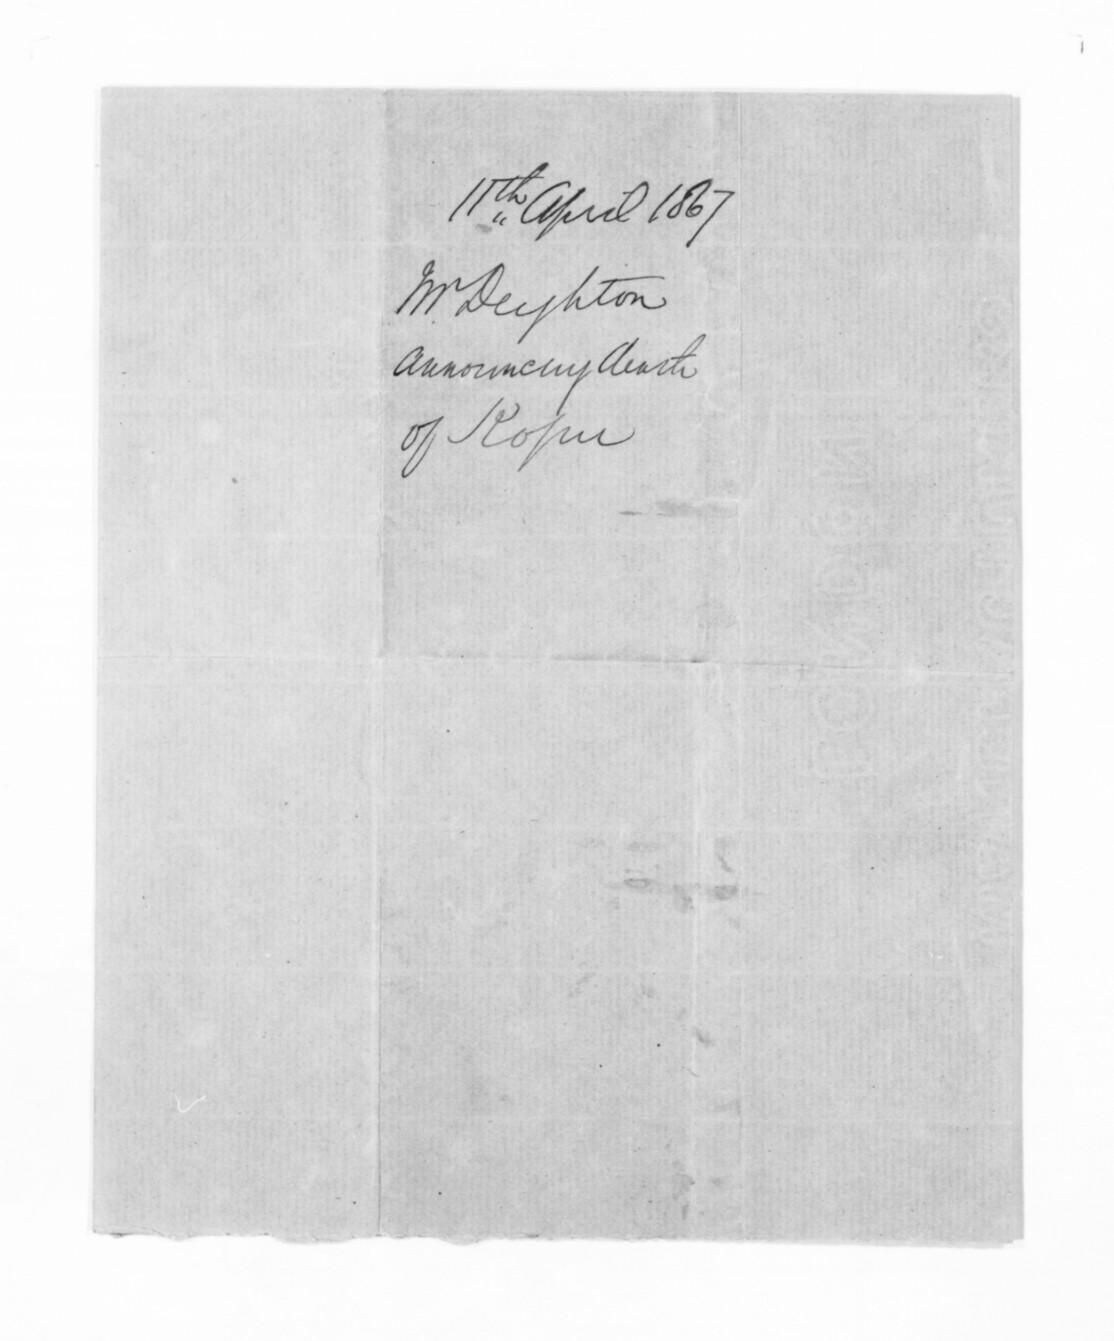 11th April 1867
Mr Deighton
announcing death
of Kopu
LONDON